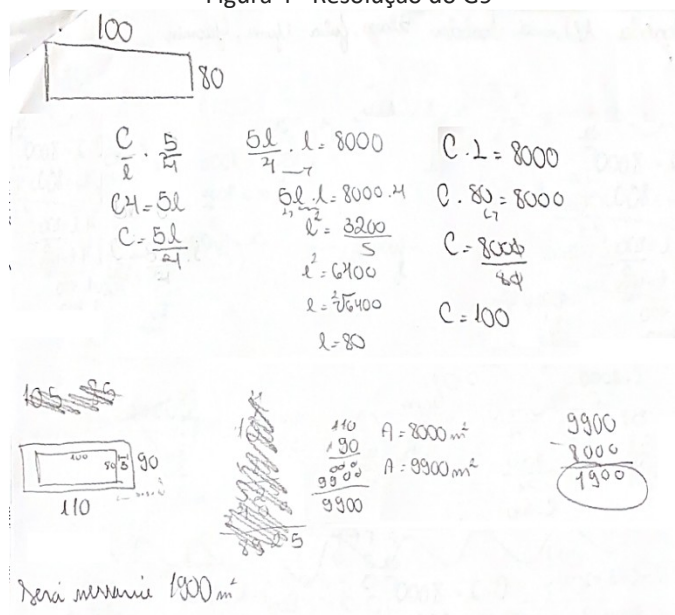 Figura 4 - Resolução do G5
100
80
C/l · 5/4
C4 = 5l
C = 5l/4
5l/4 · l = 8000
5l · l = 8000 . 4
l² = 3200/5
l² = 6400
l = ²√6400
l = 80
C . L = 8000
C . 80 = 8000
C = 8000/80
C = 100
100
80
5
90
110
110
90
9900
9900
A = 8000 m²
A = 9900 m²
9900
- 8000
1900
Será 1900 m²